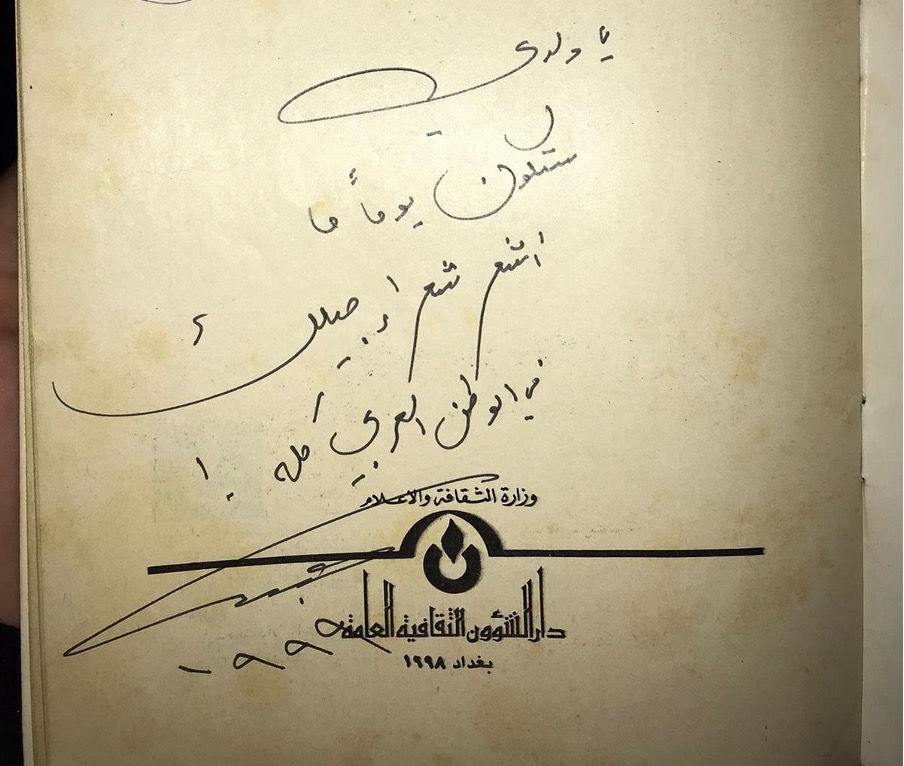 يا ولدي
ستكون يوماً ما
اشعر شعراء جيلك
في الوطن العربي كله !
وزارة الثقافة والاعلام
دار الشؤون الثقافية العامة
بغداد ١٩٩٨
١٩٩٩